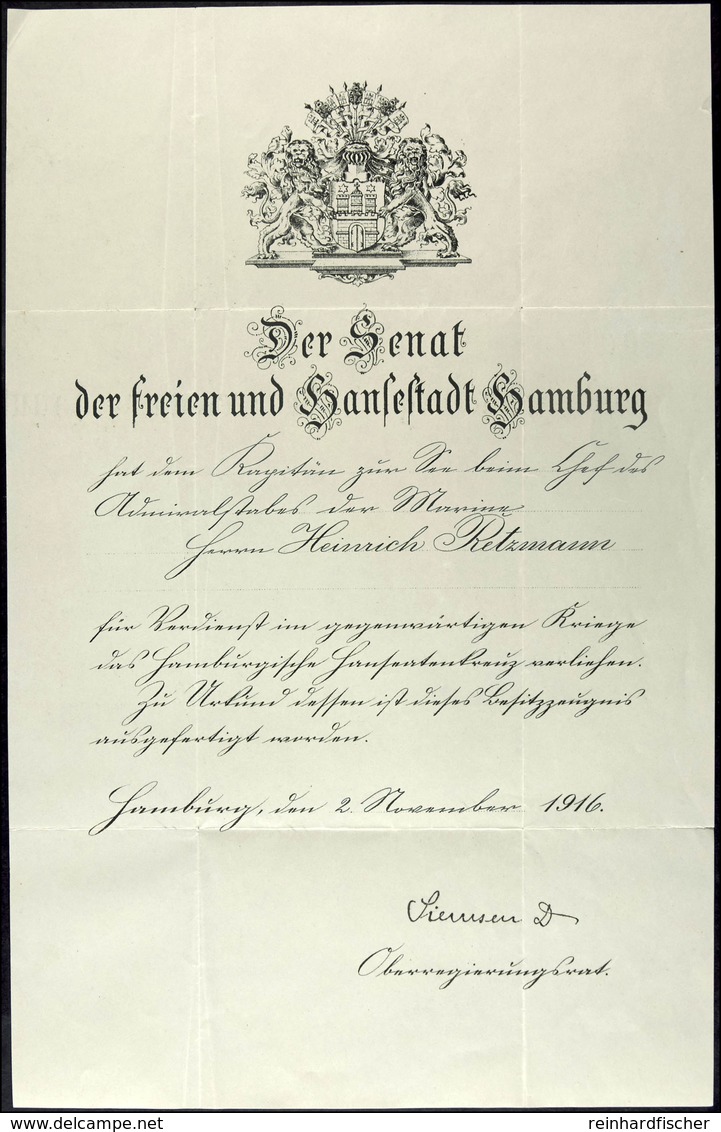 Der Senat
der freien und Hansestadt Hamburg
hat dem Kapitän zur See beim Chef des
Admiralstabes der Marine
Herrn Heinrich Retzmann
für Verdienst im gegenwärtigen Kriege
das Hamburgische Hanseatenkreuz verliehen.
Zu Urkund dessen ist dieses Besitzzeugnis
ausgefertigt worden.
Hamburg, den 2. November 1916.
Siemsen D
Oberregierungsrat.
www.delcampe.net
reinhardfischer